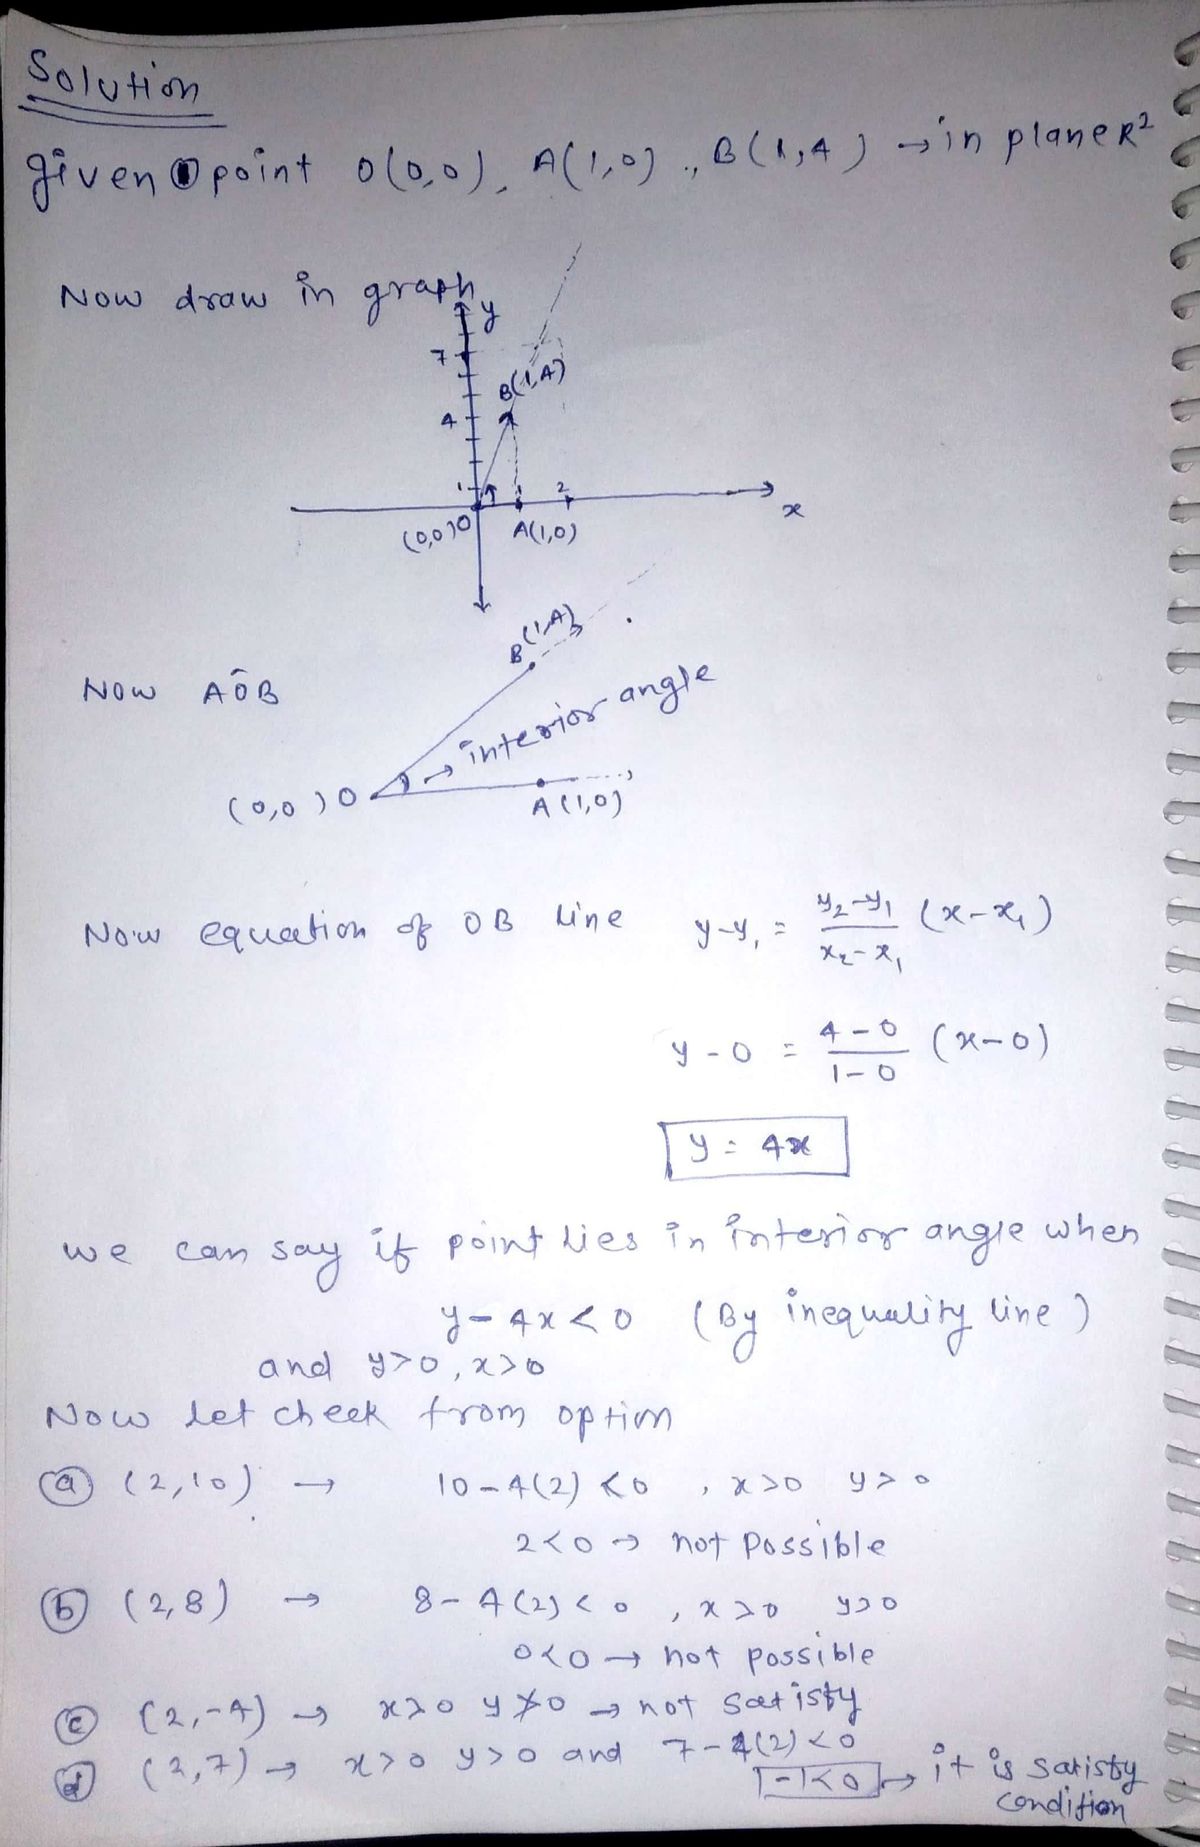 Solution
given point O(0,0), A(1,0), B(1,4) → in plane R²
Now draw in graph
y
7
B(1,4)
4
1
1
2
x
(0,0) O
A(1,0)
B(1,4)
Now AÔB
→ interior angle
(0,0) O
A(1,0)
Now equation of OB line y-y₁ = y₂-y₁/x₂-x₁ (x-x₁)
y-0 = 4-0/1-0 (x-0)
y = 4x
we can say if point lies in interior angle when
y-4x<0 (By inequality line)
and y>0, x>0
Now let check from option
(a) (2,10) → 10-4(2)<0, x>0 y>0
2<0 → not possible
(b) (2,8) → 8-4(2)<0, x>0 y>0
0<0 → not possible
(c) (2,-4) → x>0 y≯0 → not satisfy
(d) (2,7) → x>0 y>0 and 7-4(2)<0
-1<0 → it is satisfy
condition